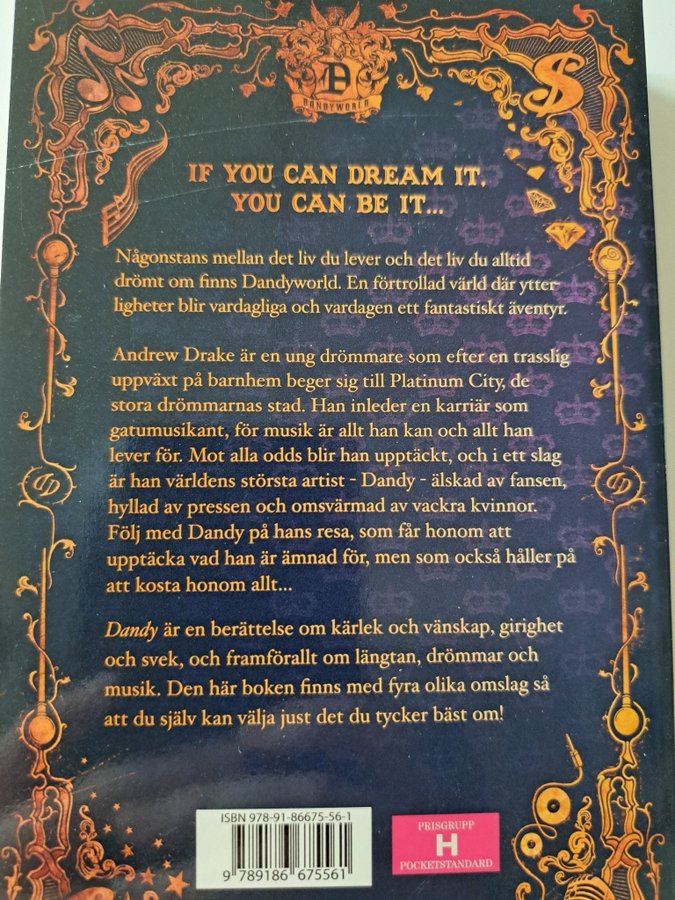 D
DANDYWORLD
$
IF YOU CAN DREAM IT,
YOU CAN BE IT...
Någonstans mellan det liv du lever och det liv du alltid
drömt om finns Dandyworld. En förtrollad värld där ytter-
ligheter blir vardagliga och vardagen ett fantastiskt äventyr.
Andrew Drake är en ung drömmare som efter en trasslig
uppväxt på barnhem beger sig till Platinum City, de
stora drömmarnas stad. Han inleder en karriär som
gatumusikant, för musik är allt han kan och allt han
lever för. Mot alla odds blir han upptäckt, och i ett slag
är han världens största artist - Dandy - älskad av fansen,
hyllad av pressen och omsvärmad av vackra kvinnor.
Följ med Dandy på hans resa, som får honom att
upptäcka vad han är ämnad för, men som också håller på
att kosta honom allt...
Dandy är en berättelse om kärlek och vänskap, girighet
och svek, och framförallt om längtan, drömmar och
musik. Den här boken finns med fyra olika omslag så
att du själv kan välja just det du tycker bäst om!
ISBN 978-91-86675-56-1
9 789186 675561
PRISGRUPP
H
POCKETSTANDARD